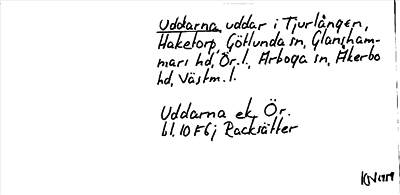 Uddarna, uddar i Tjurlången,
Haketorp, Götlunda sn, Glansham-
mars hd, Ör.l., Arboga sn, Åkerbo
hd, Västm.l.
Uddarna ek. Ör.
bl. 10 F6j Racksätter